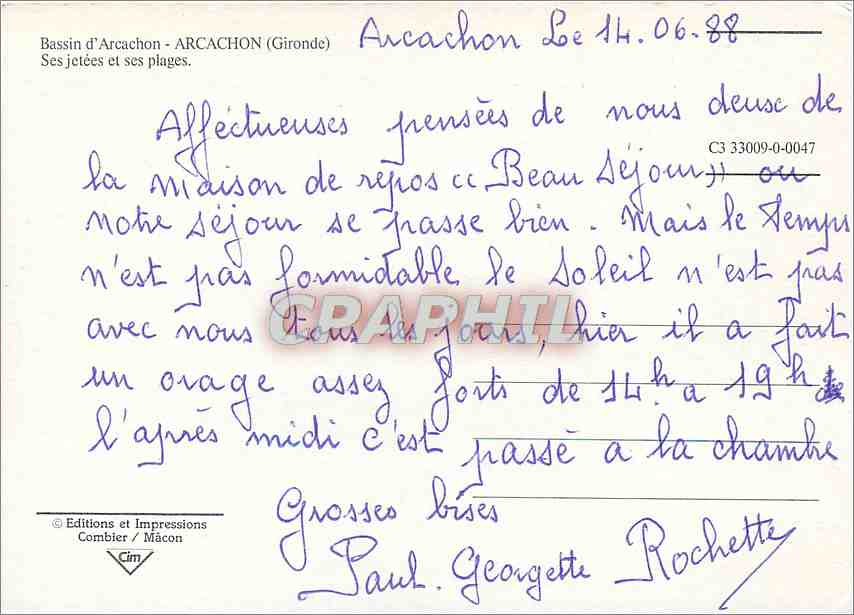 Bassin d'Arcachon - ARCACHON (Gironde)
Ses jetées et ses plages.
Arcachon Le 14.06-88
Afféctueuses pensées de nous deux de
C3 33009-0-0047
la maison de repos « Beau Séjour » ou
notre séjour se passe bien. Mais le temps
n'est pas formidable le soleil n'est pas
avec nous tous les jours, hier il a fait
CPAPHIL
un orage assez forts de 14h a 19h
l'après midi c'est passé a la chambre
Grosses bises
Paul. Georgette Rochette
© Editions et Impressions
Combier / Mâcon
Cim